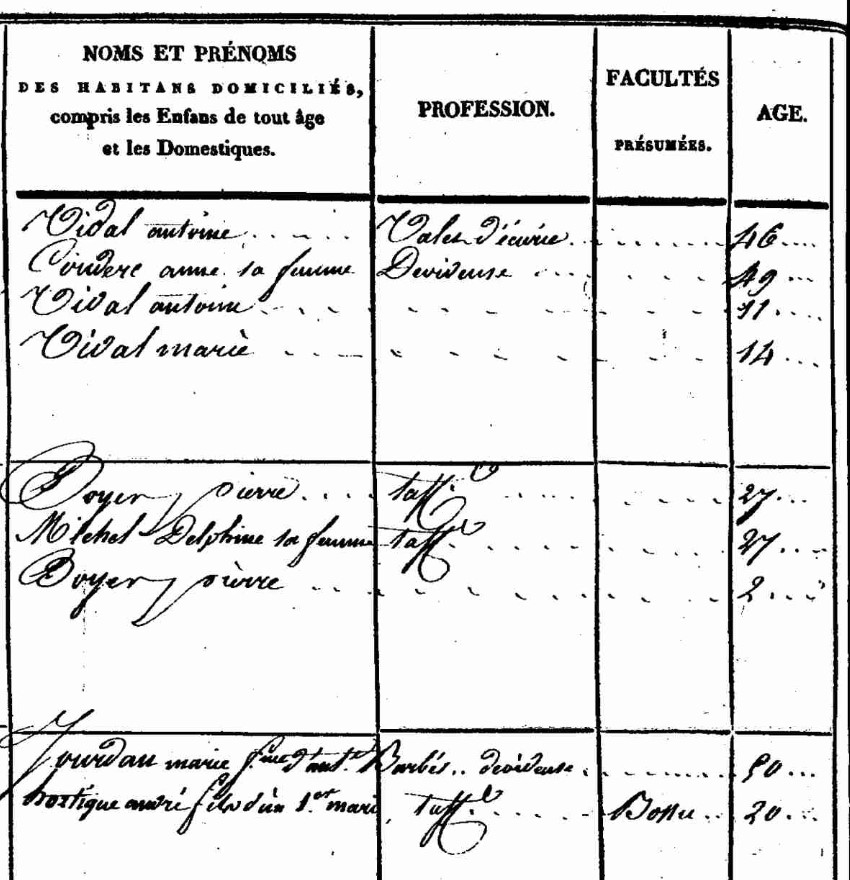 NOMS ET PRÉNOMS
DES HABITANS DOMICILIÉS,
compris les Enfans de tout âge
et les Domestiques.
PROFESSION.
FACULTÉS
PRÉSUMÉES.
AGE.
Vidal antoine Valet d'écurie 46
Couderc anne sa femme Devideuse 49
Vidal antoine 11
Vidal marie 14
Boyer pierre taff. 27
Michel Delphine sa femme taff. 27
Boyer pierre 2
Jourdan marie f.me d'ant.e Barbés devideuse 50
hortique andré fils d'un 1.er mari taff. Bossu 20